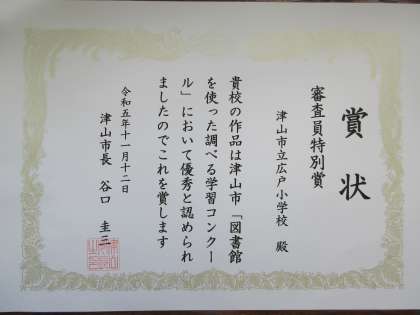 賞状
審査員特別賞
津山市立広戸小学校 殿
貴校の作品は津山市「図書館
を使った調べる学習コンクー
ル」において優秀と認められ
ましたのでこれを賞します
令和五年十一月十二日
津山市長 谷口 圭三